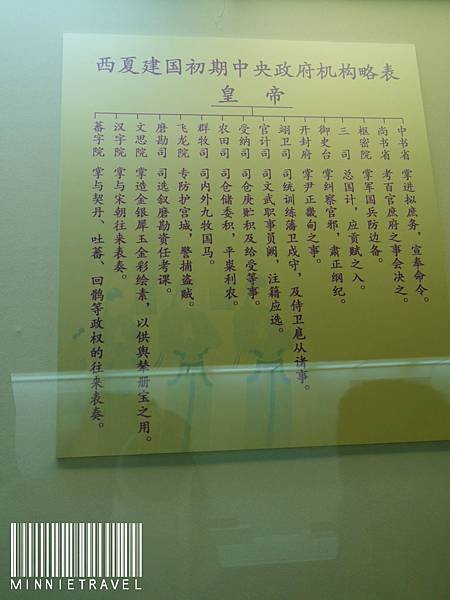 西夏建国初期中央政府机构略表
皇 帝
中书省 掌进拟庶务，宣奉命令。
尚书省 考百官庶府之事会决之。
枢密院 掌军国兵防边备。
三 司 总国计，应贡赋之入。
御史台 掌纠察官邪，肃正纲纪。
开封府 掌尹正畿甸之事。
翊卫司 司统训练藩卫戍守，及侍卫扈从诸事。
官计司 司文武职事员阙，注籍应选。
受纳司 司仓庚贮积及给受等事。
农田司 司仓储委积，平粜利农。
群牧司 司内外九牧国马。
飞龙院 专防护宫城，警捕盗贼。
磨勘司 司选叙磨勘资任考课。
文思院 掌造金银犀玉金彩绘素，以供舆辇册宝之用。
汉字院 掌与宋朝往来表奏。
蕃字院 掌与契丹、吐蕃、回鹘等政权的往来表奏。
MINNIETRAVEL